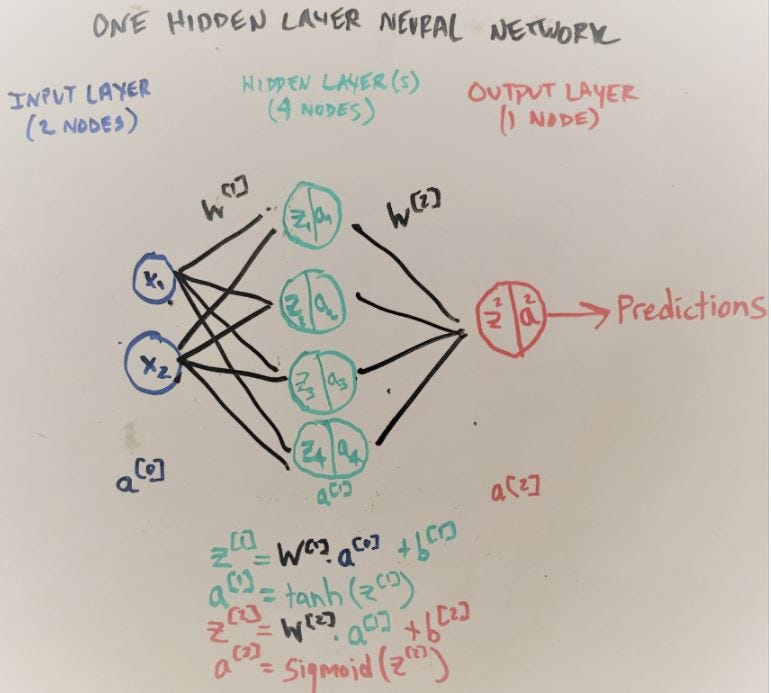 ONE HIDDEN LAYER NEURAL NETWORK
INPUT LAYER
(2 NODES)
HIDDEN LAYER(S)
(4 NODES)
OUTPUT LAYER
(1 NODE)
W[1]
W[2]
z1 a1
x1
z2 a2
z2 a2
Predictions
x2
z3 a3
z4 a4
a[0]
a[1]
a[2]
z[1] = W[1] . a[0] + b[1]
a[1] = tanh(z[1])
z[2] = W[2] . a[1] + b[2]
a[2] = sigmoid(z[2])